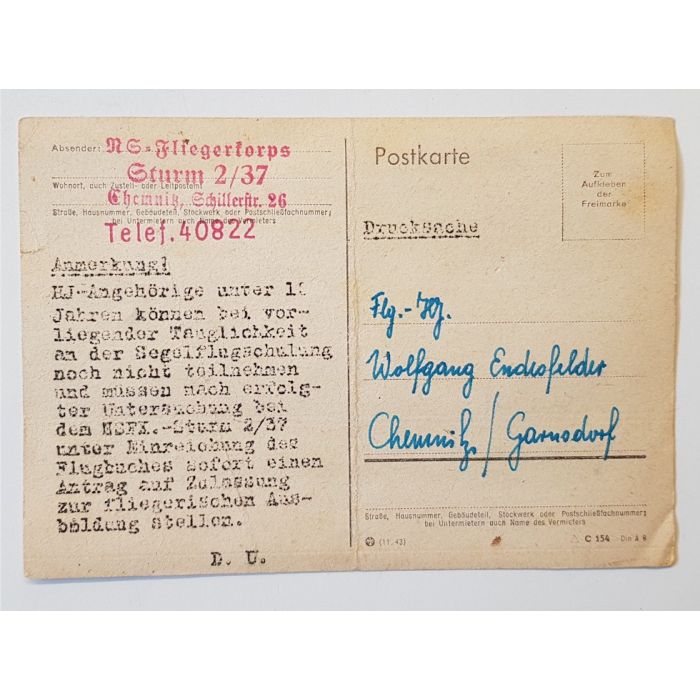 Absender:
NS-Fliegerkorps
Sturm 2/37
Wohnort, auch Zustell- oder Leitpostamt
Chemnitz, Schillerstr. 26
Straße, Hausnummer, Gebäudeteil, Stockwerk oder Postschließfachnummer;
bei Untermietern auch Name des Vermieters
Telef. 40822
Anmerkung!
HJ-Angehörige unter
Jahren können bei vor-
liegender Tauglichkeit
an der Segelflugschulung
noch nicht teilnehmen
und müssen nach erfolg-
ter Untersuchung bei
dem NSFK.-Sturm 2/37
unter Einreichung des
Flugbuches sofort einen
Antrag auf Zulassung
zur fliegerischen Aus-
bildung stellen.
D. U.
Postkarte
Zum
Aufkleben
der
Freimarke
Drucksache
Flg.-HJ.
Wolfgang Endesfelder
Chemnitz/Garnsdorf
Straße, Hausnummer, Gebäudeteil, Stockwerk oder Postschließfachnummer;
bei Untermietern auch Name des Vermieters
(11.43)
C 154 Din A 6